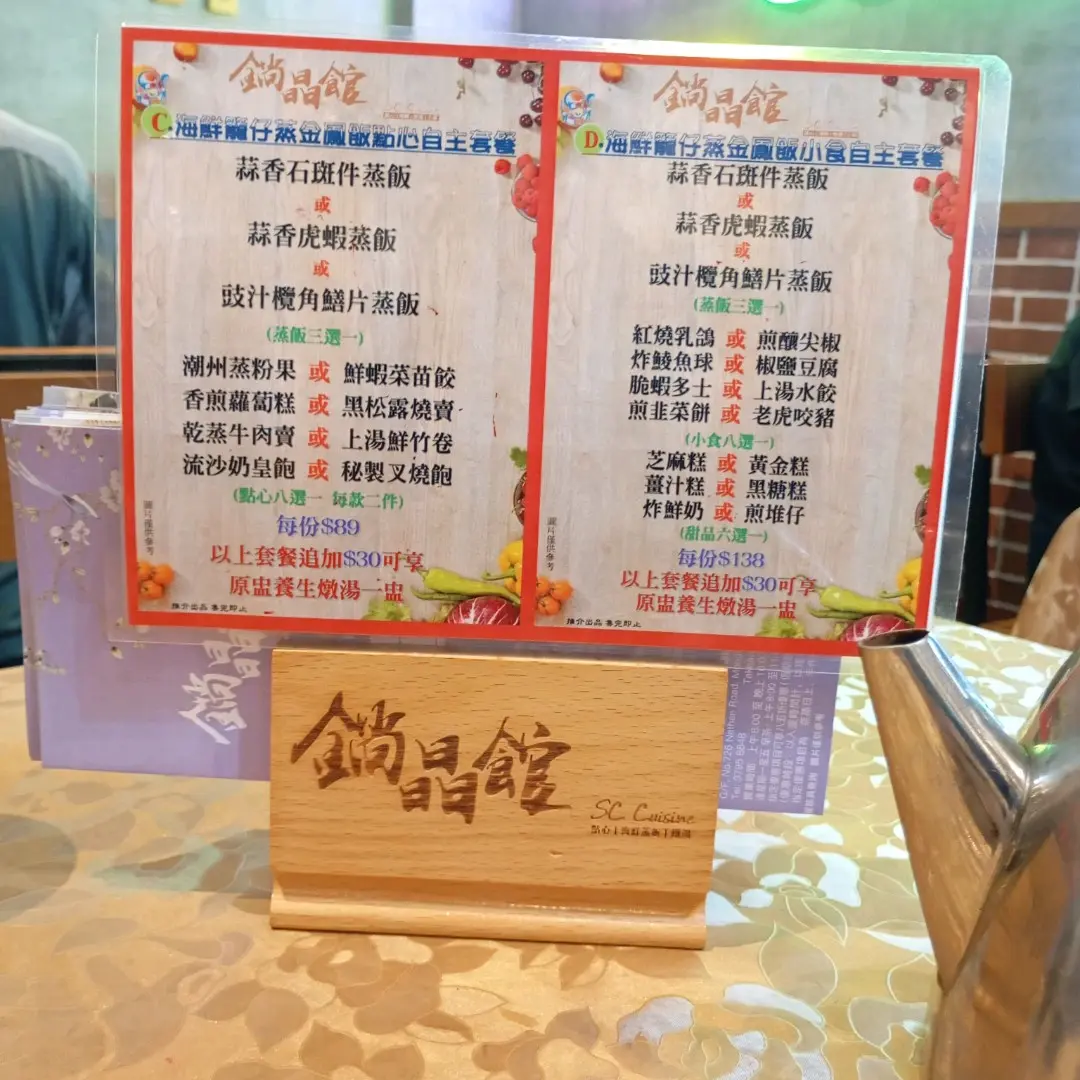 鐗晶館
C.海鮮籠仔蒸金鳳飯點心自主套餐
蒜香石斑件蒸飯
或
蒜香虎蝦蒸飯
或
豉汁欖角鱔片蒸飯
(蒸飯三選一)
潮州蒸粉果 或 鮮蝦菜苗餃
香煎蘿蔔糕 或 黑松露燒賣
乾蒸牛肉賣 或 上湯鮮竹卷
流沙奶皇飽 或 秘製叉燒飽
(點心八選一 每款二件)
每份$89
以上套餐追加$30可享
原盅養生燉湯一盅
推介出品 售完即止
圖片僅供參考
鐗晶館
D.海鮮籠仔蒸金鳳飯小食自主套餐
蒜香石斑件蒸飯
或
蒜香虎蝦蒸飯
或
豉汁欖角鱔片蒸飯
(蒸飯三選一)
紅燒乳鴿 或 煎釀尖椒
炸鯪魚球 或 椒鹽豆腐
脆蝦多士 或 上湯水餃
煎韭菜餅 或 老虎咬豬
(小食八選一)
芝麻糕 或 黃金糕
薑汁糕 或 黑糖糕
炸鮮奶 或 煎堆仔
(甜品六選一)
每份$138
以上套餐追加$30可享
原盅養生燉湯一盅
推介出品 售完即止
圖片僅供參考
SC Cuisine